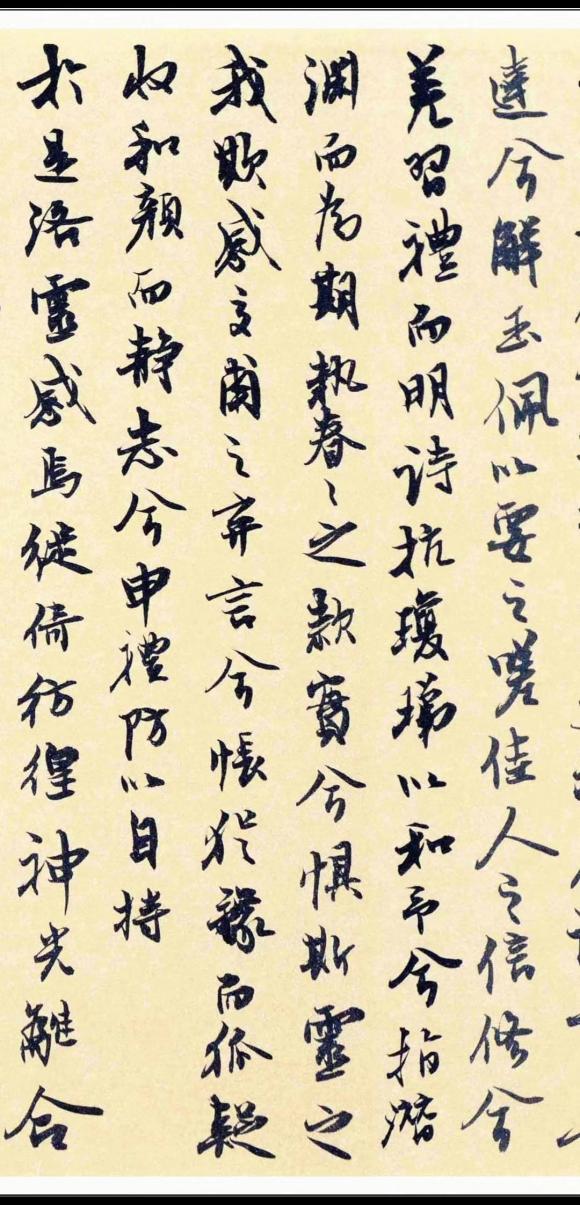 達兮解玉佩以要之嗟佳人之信脩兮
羌習禮而明詩抗瓊珶以和予兮指潛
淵而為期執眷〻之款實兮懼斯靈之
我欺感交甫之弃言兮悵猶豫而狐疑
收和顏而静志兮申禮防以自持
於是洛靈感焉徙倚彷徨神光離合